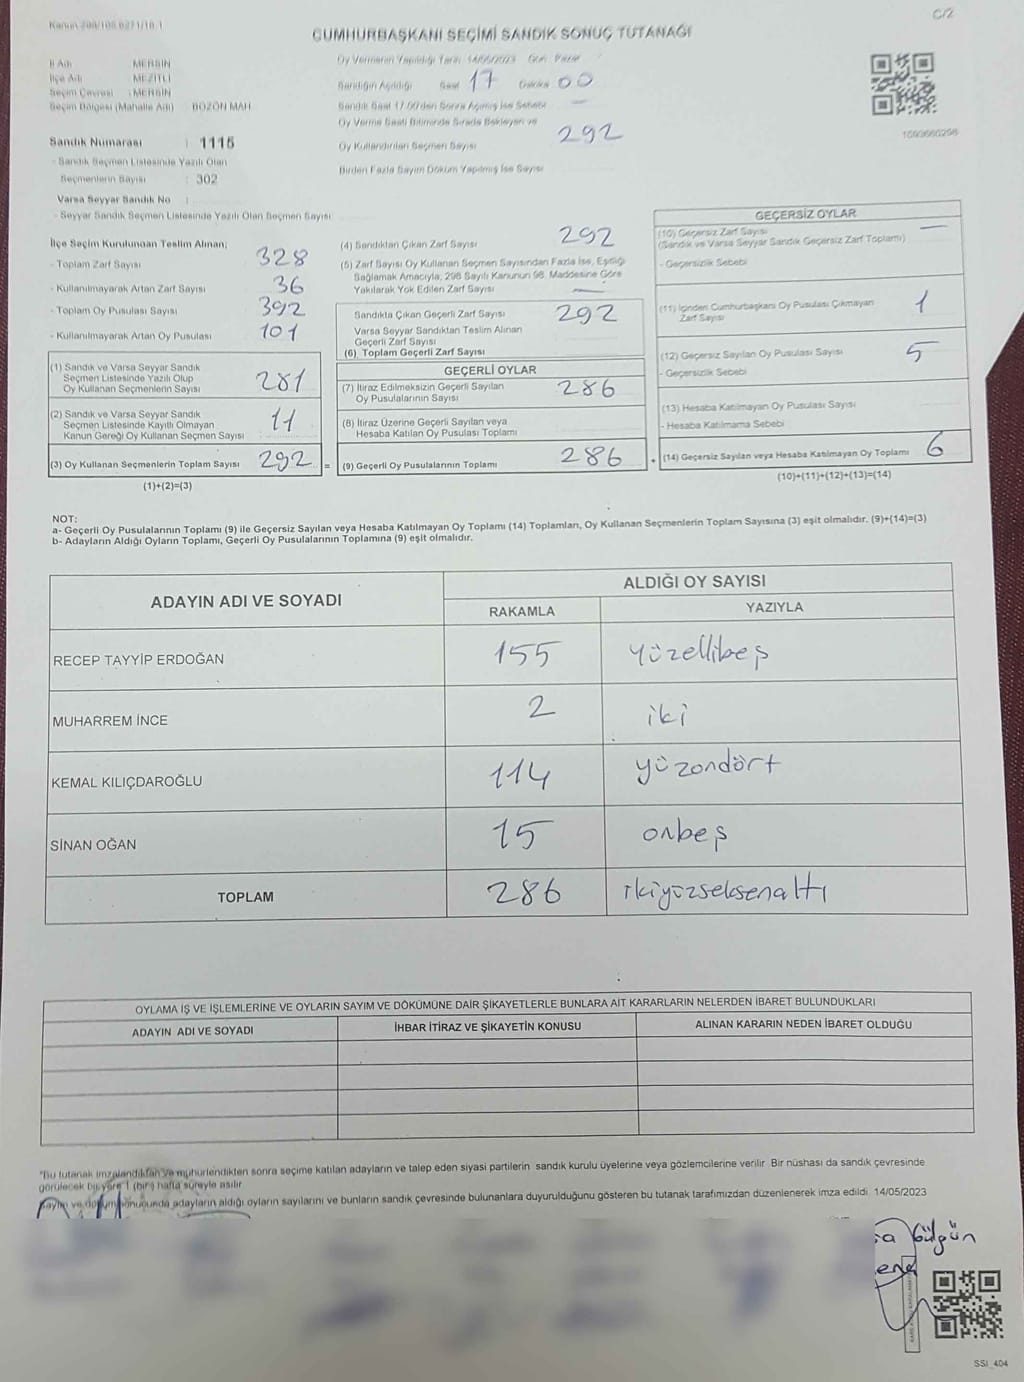 Kanun 298/108,6271/18.1
C/2
CUMHURBAŞKANI SEÇİMİ SANDIK SONUÇ TUTANAĞI
İl Adı MERSİN
İlçe Adı MEZİTLİ
Seçim Çevresi : MERSİN
Seçim Bölgesi (Mahalle Adı) BOZÖN MAH
Oy Vermenin Yapıldığı Tarih 14/05/2023 Gün: Pazar
Sandığın Açıldığı Saat 17 Dakika 00
Sandık Saat 17.00'den Sonra Açılmış İse Sebebi —
Oy Verme Saati Bitiminde Sırada Bekleyen ve
Oy Kullandırılan Seçmen Sayısı 292
Birden Fazla Sayım Döküm Yapılmış İse Sayısı
1693660298
Sandık Numarası : 1115
- Sandık Seçmen Listesinde Yazılı Olan
Seçmenlerin Sayısı : 302
Varsa Seyyar Sandık No :
- Seyyar Sandık Seçmen Listesinde Yazılı Olan Seçmen Sayısı
İlçe Seçim Kurulundan Teslim Alınan;
- Toplam Zarf Sayısı 328
- Kullanılmayarak Artan Zarf Sayısı 36
- Toplam Oy Pusulası Sayısı 392
- Kullanılmayarak Artan Oy Pusulası 101
(1) Sandık ve Varsa Seyyar Sandık
Seçmen Listesinde Yazılı Olup
Oy Kullanan Seçmenlerin Sayısı 281
(2) Sandık ve Varsa Seyyar Sandık
Seçmen Listesinde Kayıtlı Olmayan
Kanun Gereği Oy Kullanan Seçmen Sayısı 11
(3) Oy Kullanan Seçmenlerin Toplam Sayısı 292 =
(1)+(2)=(3)
(4) Sandıktan Çıkan Zarf Sayısı 292
(5) Zarf Sayısı Oy Kullanan Seçmen Sayısından Fazla İse, Eşitliği
Sağlamak Amacıyla, 298 Sayılı Kanunun 98. Maddesine Göre
Yakılarak Yok Edilen Zarf Sayısı —
Sandıkta Çıkan Geçerli Zarf Sayısı 292
Varsa Seyyar Sandıktan Teslim Alınan
Geçerli Zarf Sayısı
(6) Toplam Geçerli Zarf Sayısı
GEÇERLİ OYLAR
(7) İtiraz Edilmeksizin Geçerli Sayılan
Oy Pusulalarının Sayısı 286
(8) İtiraz Üzerine Geçerli Sayılan veya
Hesaba Katılan Oy Pusulası Toplamı
(9) Geçerli Oy Pusulalarının Toplamı 286 +
GEÇERSİZ OYLAR
(10) Geçersiz Zarf Sayısı —
(Sandık ve Varsa Seyyar Sandık Geçersiz Zarf Toplamı)
- Geçersizlik Sebebi
(11) İçinden Cumhurbaşkanı Oy Pusulası Çıkmayan
Zarf Sayısı 1
(12) Geçersiz Sayılan Oy Pusulası Sayısı 5
- Geçersizlik Sebebi
(13) Hesaba Katılmayan Oy Pusulası Sayısı
- Hesaba Katılmama Sebebi
(14) Geçersiz Sayılan veya Hesaba Katılmayan Oy Toplamı 6
(10)+(11)+(12)+(13)=(14)
NOT:
a- Geçerli Oy Pusulalarının Toplamı (9) ile Geçersiz Sayılan veya Hesaba Katılmayan Oy Toplamı (14) Toplamları, Oy Kullanan Seçmenlerin Toplam Sayısına (3) eşit olmalıdır. (9)+(14)=(3)
b- Adayların Aldığı Oyların Toplamı, Geçerli Oy Pusulalarının Toplamına (9) eşit olmalıdır.
ADAYIN ADI VE SOYADI
ALDIĞI OY SAYISI
RAKAMLA YAZIYLA
RECEP TAYYİP ERDOĞAN 155 yüzellibeş
MUHARREM İNCE 2 iki
KEMAL KILIÇDAROĞLU 114 yüzondört
SİNAN OĞAN 15 onbeş
TOPLAM 286 ikiyüzseksenaltı
OYLAMA İŞ VE İŞLEMLERİNE VE OYLARIN SAYIM VE DÖKÜMÜNE DAİR ŞİKAYETLERLE BUNLARA AİT KARARLARIN NELERDEN İBARET BULUNDUKLARI
ADAYIN ADI VE SOYADI İHBAR İTİRAZ VE ŞİKAYETİN KONUSU ALINAN KARARIN NEDEN İBARET OLDUĞU
*Bu tutanak imzalandıktan ve mühürlendikten sonra seçime katılan adayların ve talep eden siyasi partilerin sandık kurulu üyelerine veya gözlemcilerine verilir. Bir nüshası da sandık çevresinde
görülecek bir yere 1 (bir) hafta süreyle asılır
Sayım ve döküm sonucunda adayların aldığı oyların sayılarını ve bunların sandık çevresinde bulunanlara duyurulduğunu gösteren bu tutanak tarafımızdan düzenlenerek imza edildi. 14/05/2023
Gülgün
SSI_404